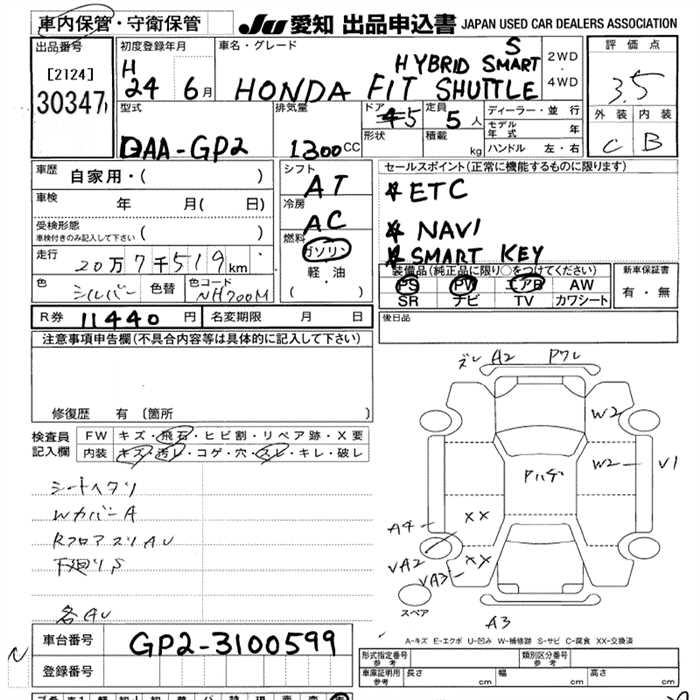 車内保管・守衛保管
JU 愛知 出品申込書 JAPAN USED CAR DEALERS ASSOCIATION
出品番号
[2124]
30347
初度登録年月
H
24 6月
車名・グレード
HYBRID S SMART
HONDA FIT SHUTTLE
2WD
4WD
評価点
3.5
型式
DAA-GP2
排気量
1300CC
ドア
5
形状
定員
5人
積載
kg
ディーラー・並行
モデル年式 年
ハンドル 左・右
外装 内装
C B
車歴
自家用・( )
車検
年 月( 日)
受検形態
車検付きのみ記入して下さい
走行
20万7千519km
色
シルバー
色替
色コード
NH700M
シフト
AT
冷房
AC
燃料
ガソリン
軽・油
( )
セールスポイント(正常に機能するものに限ります)
ETC
NAVI
SMART KEY
装備品(純正品に限り○をつけてください)
PS PW エアB AW
SR ナビ TV カワシート
新車保証書
有・無
R券 11440円
名変期限 月 日
後日品
注意事項申告欄(不具合内容等は具体的に記入して下さい)
修復歴 有 (箇所 )
検査員
記入欄
FW キズ・飛石・ヒビ割・リペア跡・X要
内装 キズ・汚レ・コゲ・穴・スレ・キレ・破レ
シートヘタリ
WカバーA
RフロアスリAU
下廻りS
各AU
ズレ A2 Pワレ
W2
W2
V1
Pハゲ
XX
A4
VA2
XX
VA3
スペア
A3
A-キズ E-エクボ U-凹み W-補修跡 S-サビ C-腐食 XX-交換済
車台番号
GP2-3100599
登録番号
型式指定番号
参考
類別区分番号
参考
車庫証明用
参考
長さ cm
幅 cm
高さ cm